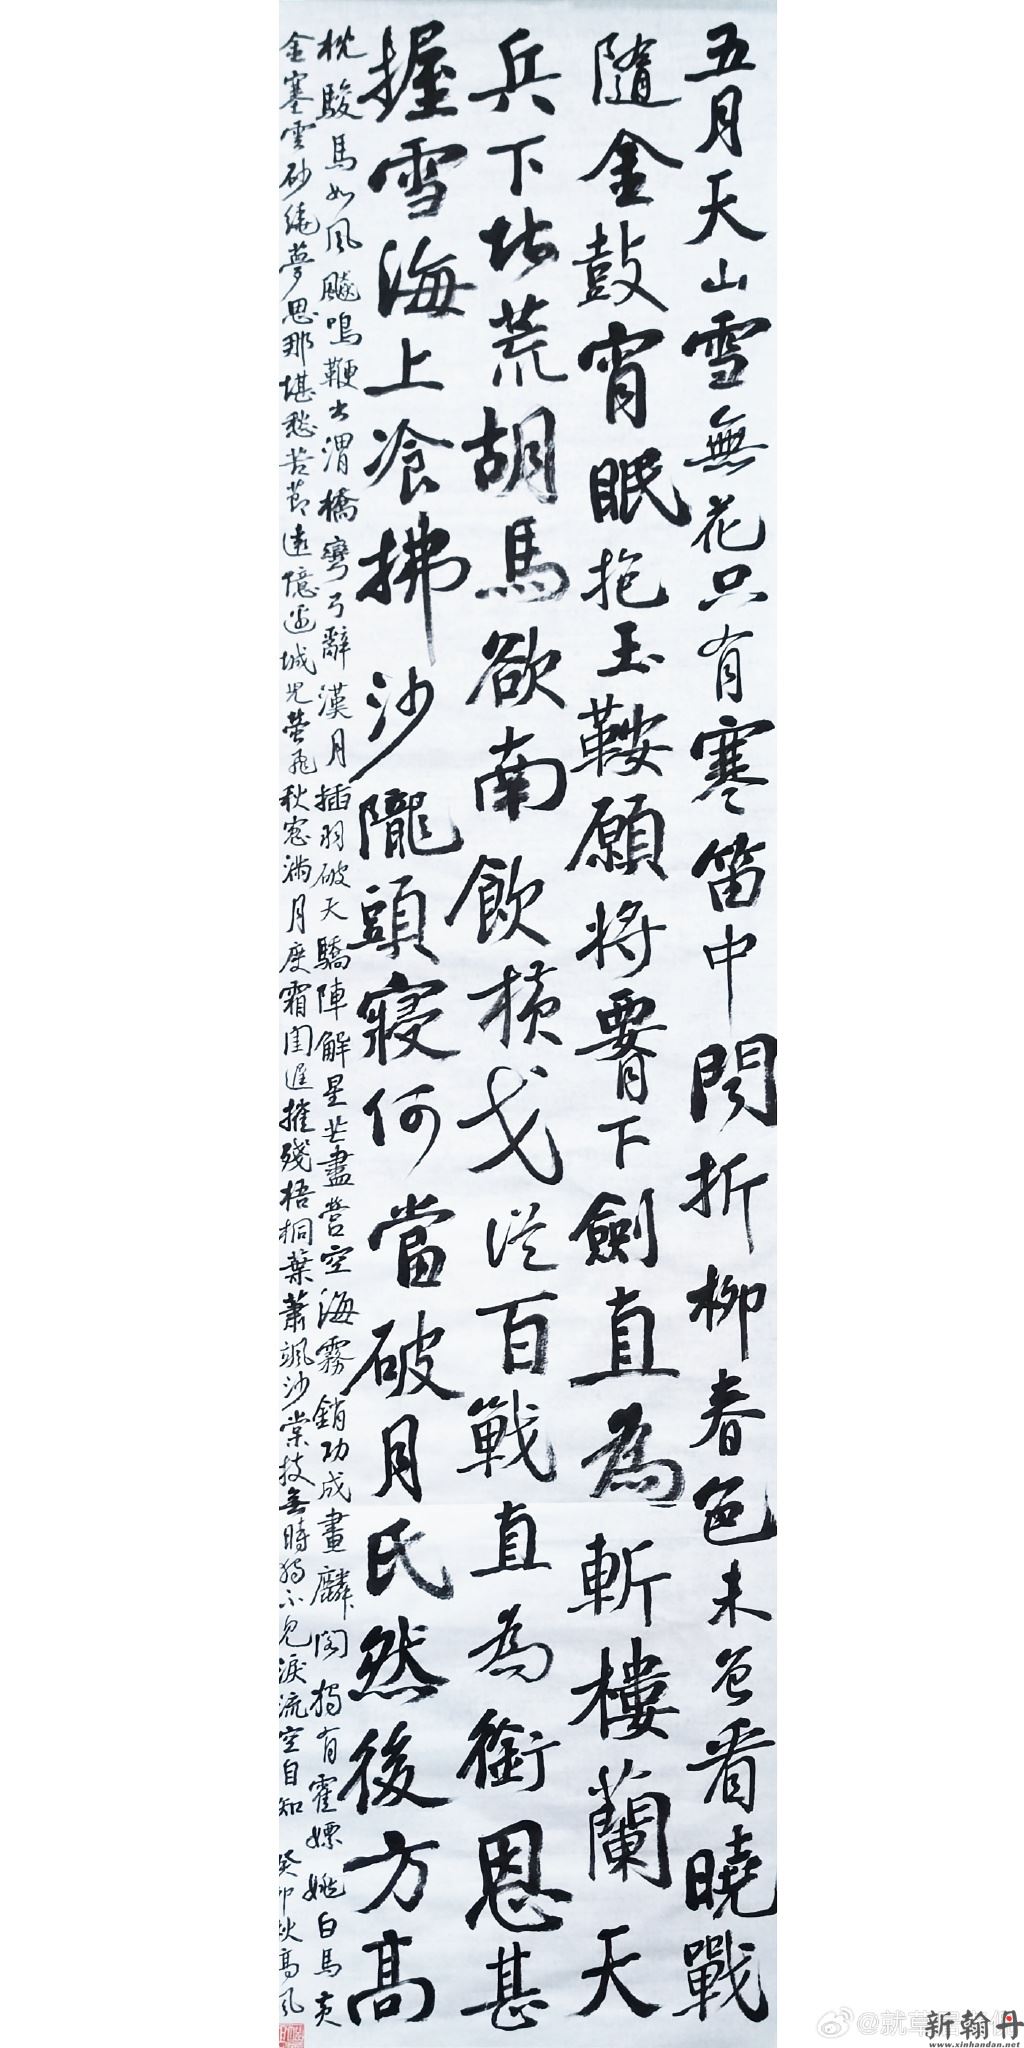 五月天山雪無花只有寒笛中閒折柳春色未曾看曉戰
隨金鼓宵眠抱玉鞍願將腰下劍直為斬樓蘭天
兵下北荒胡馬欲南飲橫戈從百戰直為銜恩甚
握雪海上飡拂沙隴頭寢何當破月氏然後方高
枕駿馬如風飈鳴鞭出渭橋彎弓辭漢月插羽破天驕陣解星芒盡營空海霧銷功成畫麟閣獨有霍嫖姚白馬黃
金塞雲砂繞夢思那堪愁苦節遠憶邊城兒螢飛秋窓滿月度霜閨遲摧殘梧桐葉蕭颯沙棠枝無時獨不見淚流空自知 癸卯秋高風
@就草
新翰丹
www.xinhandan.net